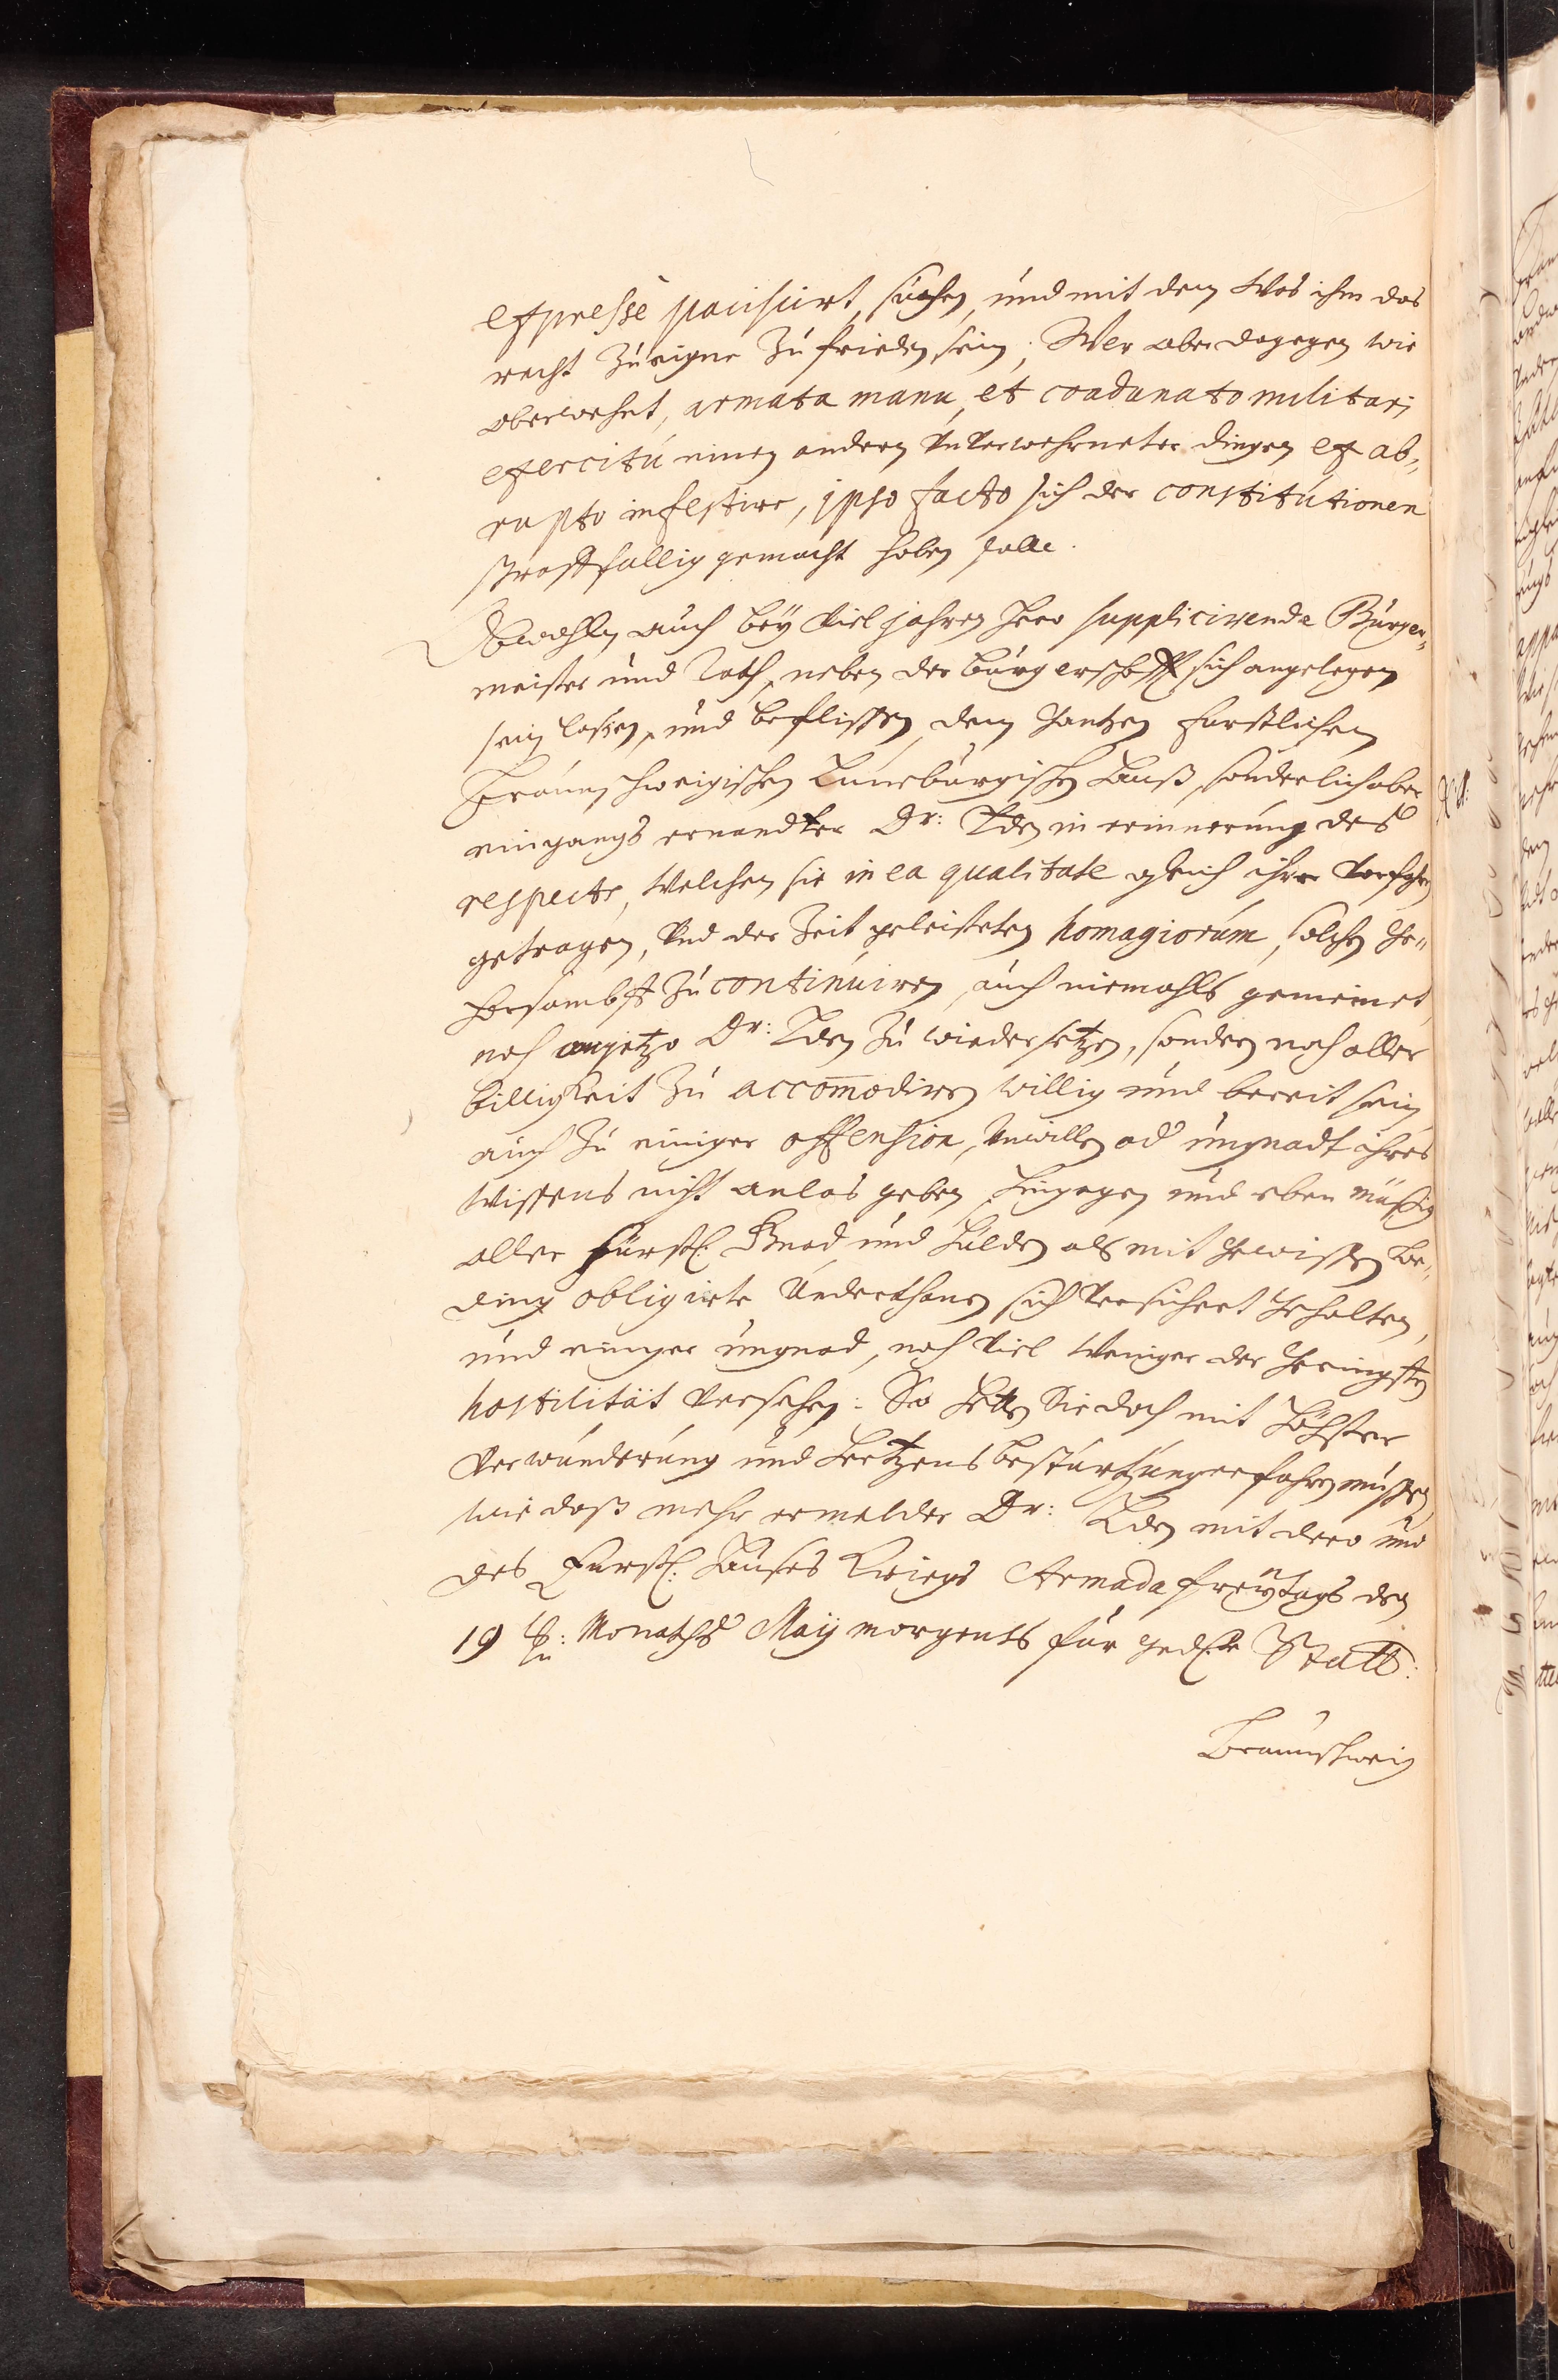 expresse paciscirt, suchen, und mit dem Was ihm das
recht zueigne zu frieden sein; Wer aber dagegen wie
oberwehnt, armata manu, et coadunato militari
exercitu einen andern Unverwehrneter dingen ex ab„
rupto infestire, ipso facto sich der constitutionen
straffällig gemacht haben solle.
Obwohln auch bey viel jahren hero supplicirende Bürger„
meister und Rath, neben der bürgerschafft sich angelegen
sein laßen, und beflissen, dem Gantzen fürstlichen
Braunschweigischen Lüneburgischen Hauß, sonderlich aber
eingangs ernandter Dr: Lden in erinnerung des
respects, Welchen sie in ea qualitate gleich ihren Vorfahren
getragen, Und der Zeit geleisteten homagiorum, solchen Ge„
horsambst zu continuiren, auch niemahls gemeinet,
noch anjetzo Dr: Lden zu wiedersetzen, sondern nach aller
billigkeit zu accomodiren willig und bereit sein,
auch zu einiger offension, Unwillen od ungnadt ihres
Wissens nicht anlas geben, hingegen und eben mäßig
aller Fürstl: Gnad und Hulden als mit gewissen be„
ding obligirte Underthanen sich Versichert gehalten,
und einiger ungnad, noch Viel Weniger der geringsten
hostilität Versehen: So hetten Sie doch mit höchster
Verwunderung und hertzens bestürtzung erfahren müßen,
wie daß mehr ermelder Dr: Lden mit dero und
des Fürstl: Hauses Kriegs Armada freÿtags den
19 Monaths Maij morgents für gedachte Statt
Braunschweig